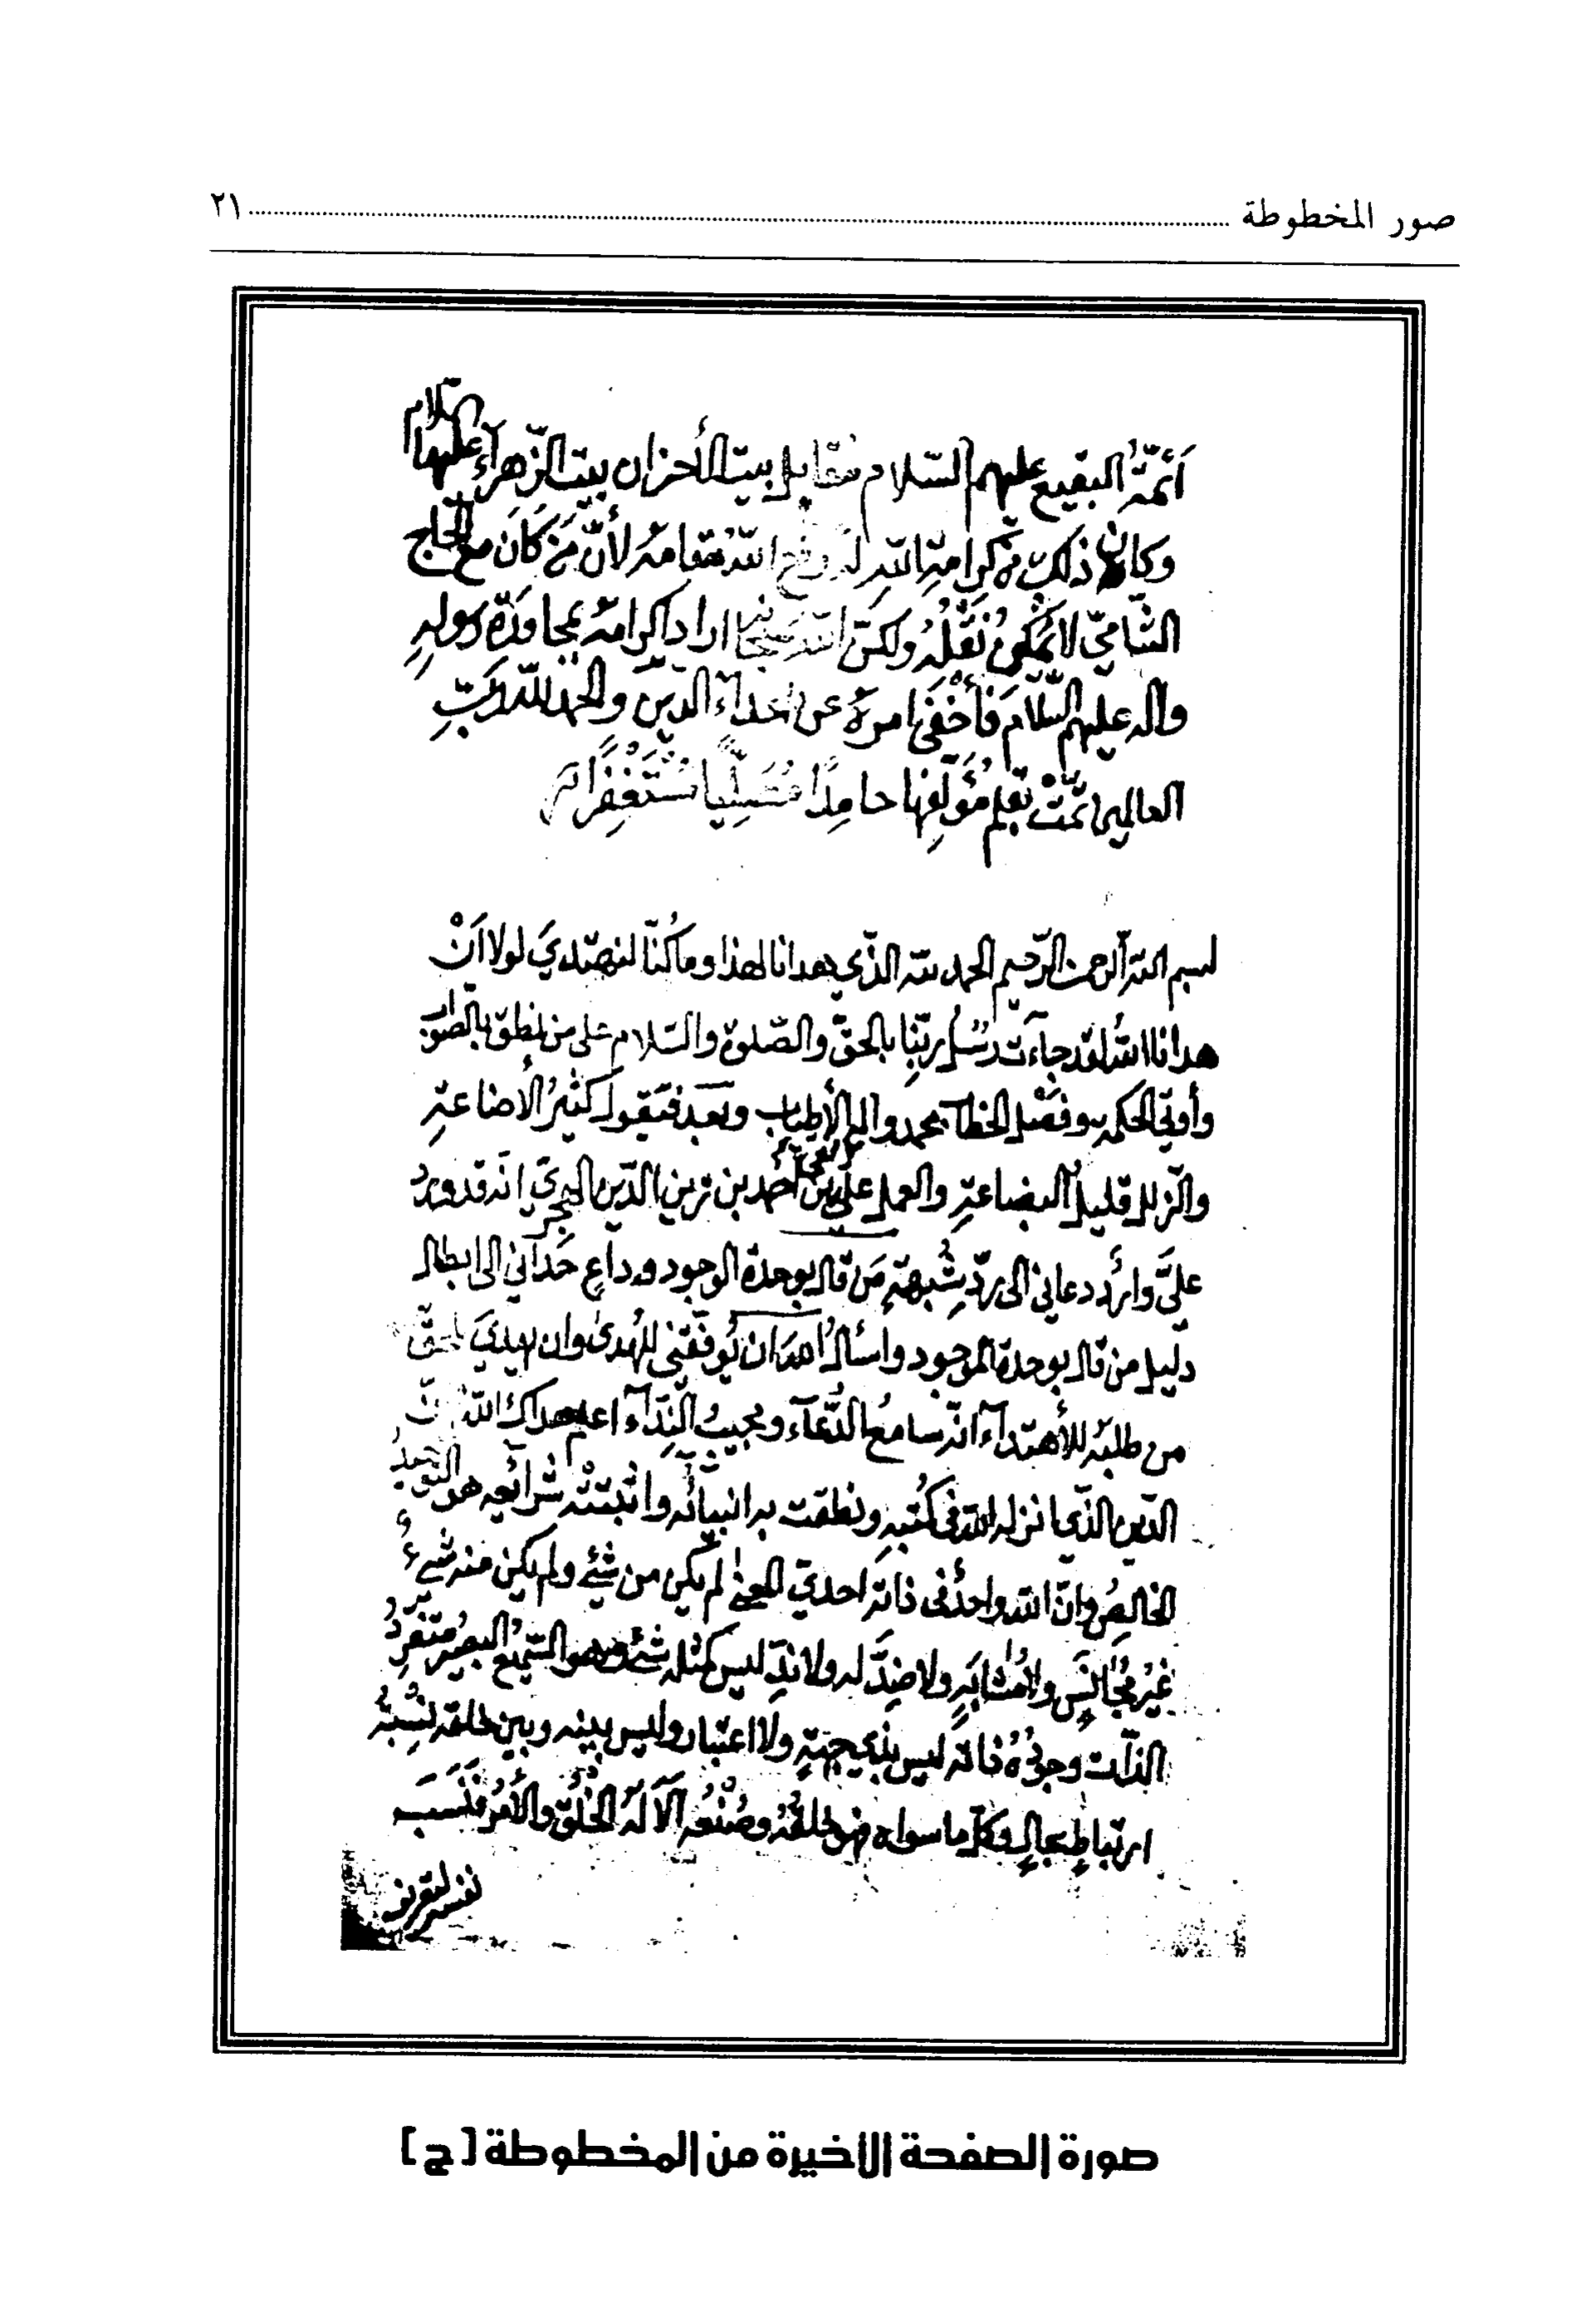 صور المخطوطة ........................ ٢١
أئمّة البقيع عليهم السّلام مقابل بيت الأحزان بيت الزّهرآء عليها السّلام
وكان ذلك من كرامته الله له رفع الله مقامه لأنّ مَن كَانَ مع الحاج
الشّاميّ لا يُمكِنُ نَقْلُهُ ولكنّ الله سبحانه اراد اكرامه بمجاورة رسولِهِ
واله عليهم السّلام فَأَخْفَى امره عن اعدآء الدّين والحمد لله ربّ
العالمين تمّتْ بقلم مُؤلّفِها حامِدًا مُصَلِّيًا مُسْتَغْفِرًا
بسم الله الرحمن الرّحيم الحمد لله الذّي هدانا لهذا وما كُنّا لنهتدي لولا أنْ
هدانا الله لقد جآءت رُسُل ربّنا بالحقّ والصّلوة والسّلام على من نطق بالصّواب
وأوتي الحكمة وفَصْل الخطاب محمد واله الأطياب وبعد فَيَقول كَثيرُ الأضاعةِ
والزّلل قليلُ البضاعةِ والعمل عليّ نقي بن أحمد بن زين الدّين الهجري انّه قد ورد
عليَّ وارد دعاني الى ردّ شُبهةِ مَن قال بوحدة الوجود وداعٍ حَداني الى ابطال
دليل من قال بوحدة الموجود واسألُ الله ان يُوفّقني للهُدى وان يهدي للحقّ
من طلبه للأهتدآء انّه سامعُ الدُّعآء ومجيبُ النِّدآء اعلم هداك الله انّ
الدّين الذّي انزله الله في كُتُبِه ونطقت به انبيآئه واثبتتْه شرآئعه هو التّوحيدُ
الخالِصُ وانّ الله واحدٌ في ذاته احديّ المعنى لم يكن من شيءٍ ولم يكن منه شيءٌ
غيرُ مُجَانَسٍ ولا مُشابَهٍ ولا ضِدَّ له ولا ندّ ليس كمثله شيءٌ وهو السّميعُ البصيرُ متفرّدُ
الذّات وجودُهُ ذاته ليس بذي جهةٍ ولا اعتبار وليس بينه وبين خلقه نسبةُ
ارتباطٍ بحالٍ وكلّ ما سواه فهو خلقُهُ وصُنْعُه اَلَا لَهُ الخَلْقُ والأَمْرُ فنسب
نفسه
صورة الصفحة الاخيرة من المخطوطة [ج]